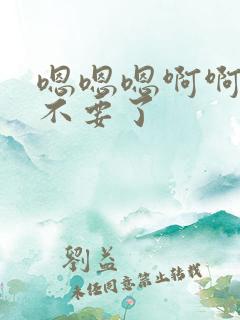 嗯嗯嗯啊啊
不要了
劉益
未经同意禁止转载